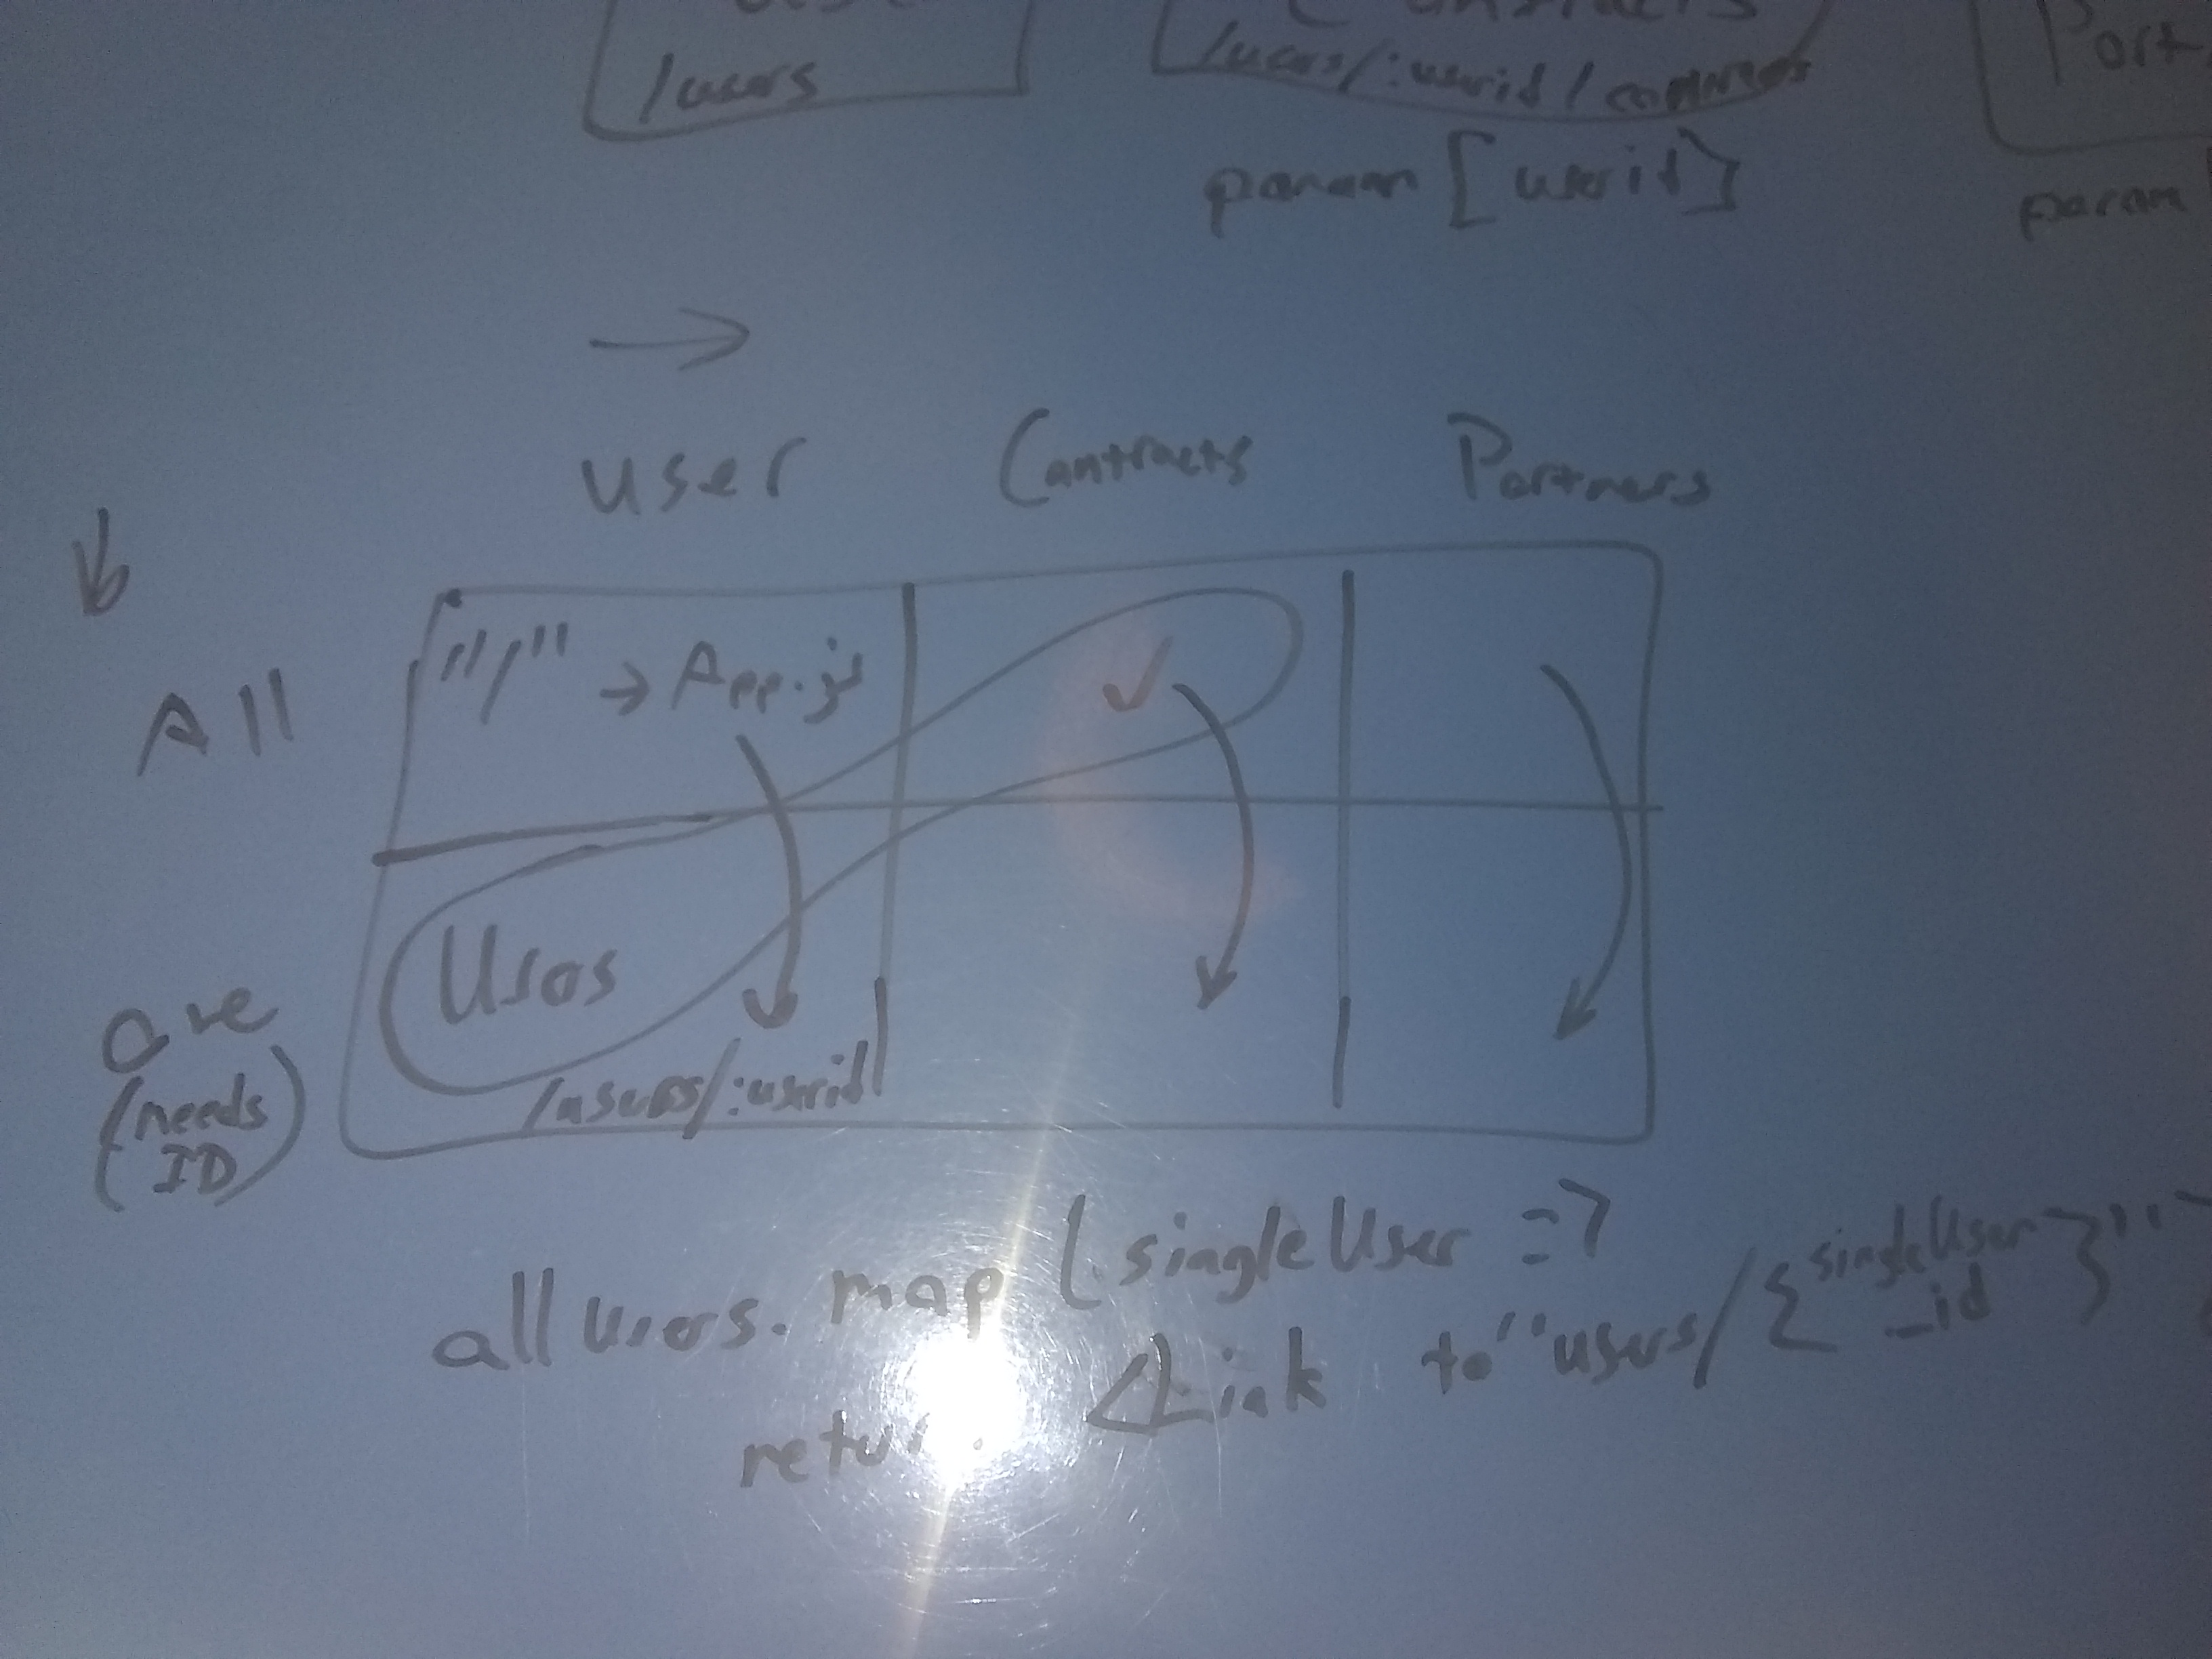 /users
/users/:userid/contracts
param [userid]
param
→
user Contracts Partners
All
"/" → App.js
One
(needs
ID)
Users
/users/:userid
allUsers.map (singleUser =>
return <Link to "users/{singleUser
_id}"